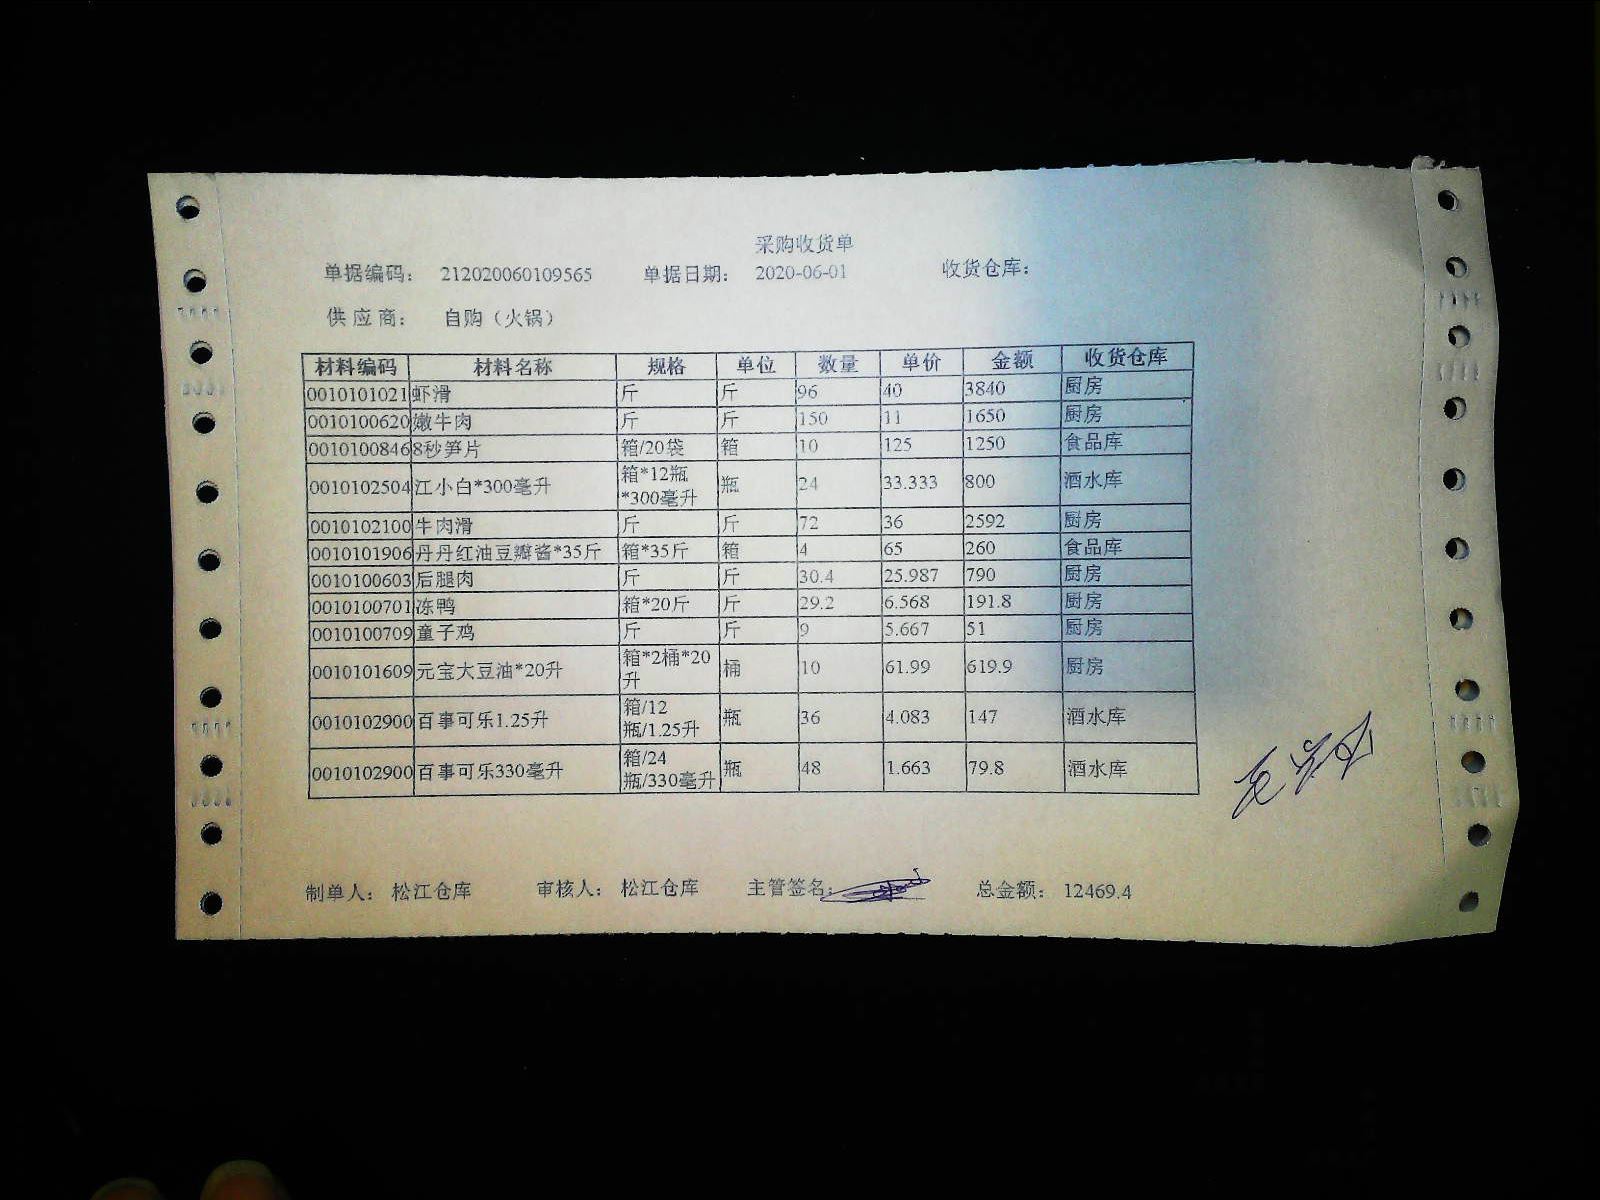 采购收货单
单据编码: 212020060109565 单据日期: 2020-06-01 收货仓库:
供应商: 自购（火锅）
材料编码 材料名称 规格 单位 数量 单价 金额 收货仓库
0010101021 虾滑 斤 斤 96 40 3840 厨房
0010100620 嫩牛肉 斤 斤 150 11 1650 厨房
0010100846 8秒笋片 箱/20袋 箱 10 125 1250 食品库
0010102504 江小白*300毫升 箱*12瓶*300毫升 瓶 24 33.333 800 酒水库
0010102100 牛肉滑 斤 斤 72 36 2592 厨房
0010101906 丹丹红油豆瓣酱*35斤 箱*35斤 箱 4 65 260 食品库
0010100603 后腿肉 斤 斤 30.4 25.987 790 厨房
0010100701 冻鸭 箱*20斤 斤 29.2 6.568 191.8 厨房
0010100709 童子鸡 斤 斤 9 5.667 51 厨房
0010101609 元宝大豆油*20升 箱*2桶*20升 桶 10 61.99 619.9 厨房
0010102900 百事可乐1.25升 箱/12瓶/1.25升 瓶 36 4.083 147 酒水库
0010102900 百事可乐330毫升 箱/24瓶/330毫升 瓶 48 1.663 79.8 酒水库
制单人: 松江仓库 审核人: 松江仓库 主管签名: 总金额: 12469.4